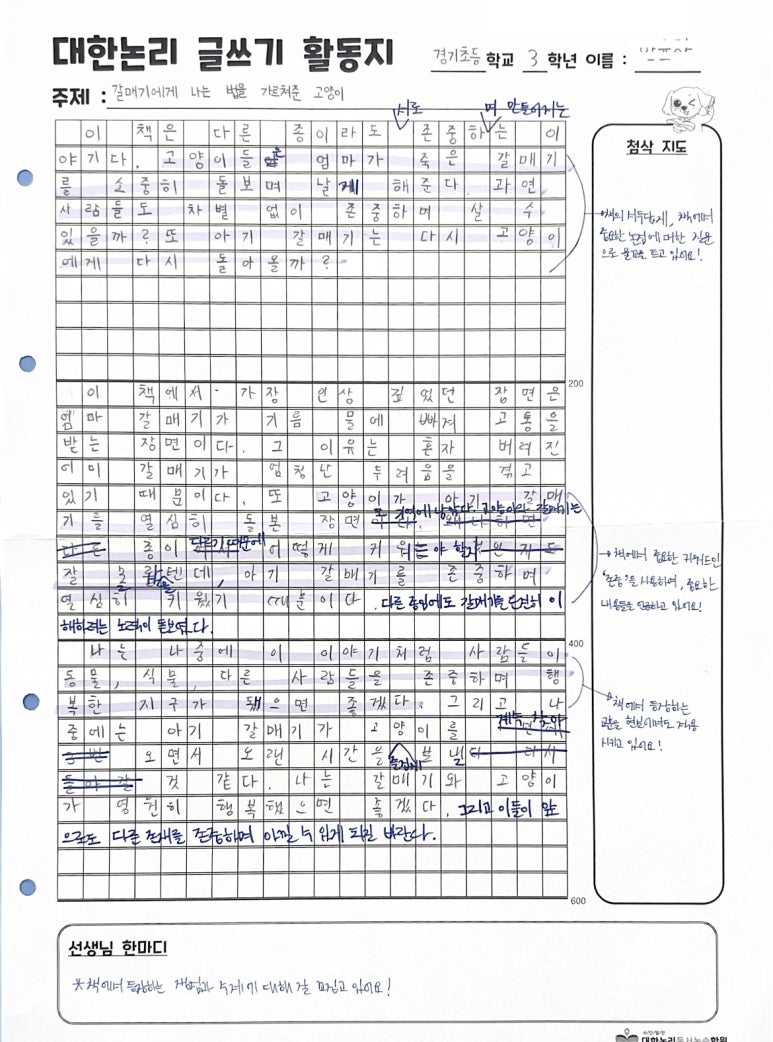 대한논리 글쓰기 활동지
경기초등 학교 3 학년 이름 :
주제 : 갈매기에게 나는 법을 가르쳐준 고양이
서로 며 만들어지는
이 책은 다른 종이라도 존중하는 이
야기다. 고양이들은 엄마가 죽은 갈매기
를 소중히 돌보며 날게 해준다. 과연
사람들도 차별 없이 존중하며 살 수
있을까? 또 아기 갈매기는 다시 고양이
에게 다시 돌아올까?
200
이 책에서 가장 인상 깊었던 장면은
엄마 갈매기가 기름 물에 빠져 고통을
받는 장면이다. 그 이유는 혼자 버려진
어미 갈매기가 엄청난 두려움을 겪고
있기 때문이다. 또 고양이가 아기 갈매
또 기억에 남았다. 고양이와 갈매기는
기를 열심히 돌본 장면
종이 다르기 때문에 어떻게 키워야 할지
잘 모를텐데, 아기 갈매기를 존중하며
열심히 키웠기 때문이다. 다른 종임에도 갈매기를 온전히 이
해하려는 노력이 돋보였다.
400
나는 나중에 이 이야기처럼 사람들이
동물, 식물, 다른 사람들을 존중하며 행
복한 지구가 됐으면 좋겠다. 그리고 나
중에는 아기 갈매기가 고양이를 계속 찾아
오면서 오랜 시간을 즐겁게 보낼
것 같다. 나는 갈매기와 고양이
가 영원히 행복했으면 좋겠다. 그리고 이들이 앞
으로도 다른 존재를 존중하며 아낄 수 있게 되길 바란다.
600
첨삭 지도
책의 서두답게, 책에서
중요한 논점에 대한 질문
으로 물꼬를 트고 있어요!
책에서 중요한 키워드인
'존중'을 사용하여, 중요한
내용들을 언급하고 있어요!
책에서 등장하는
교훈을 현실에서도 적용
시키고 있어요!
선생님 한마디
책에서 등장하는 대해 잘 있어요!
대한논리독서논술학원